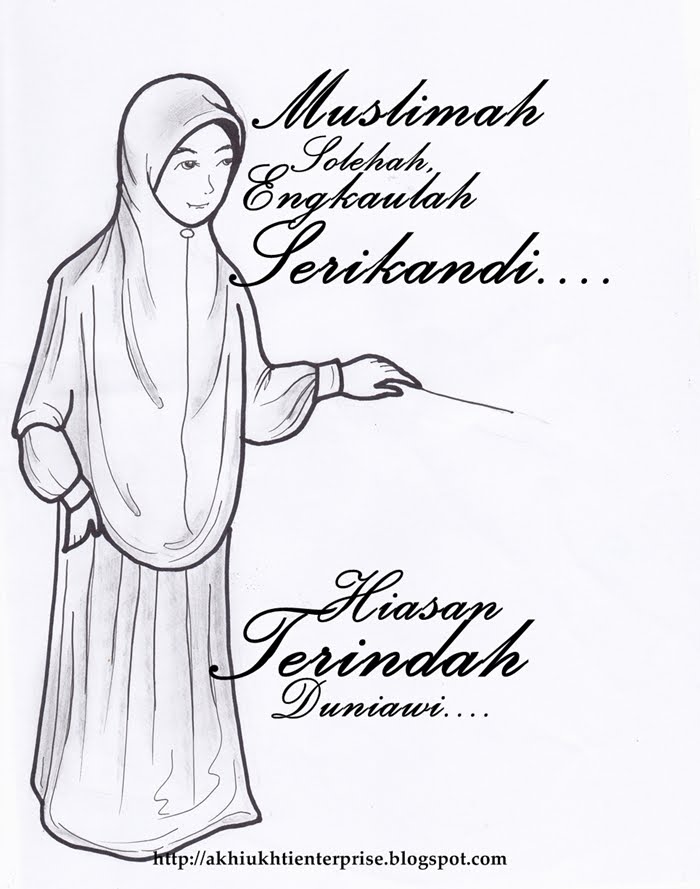 Muslimah
Solehah,
Engkaulah
Serikandi....
Hiasan
Terindah
Duniawi....
http://akhiukhtienterprise.blogspot.com